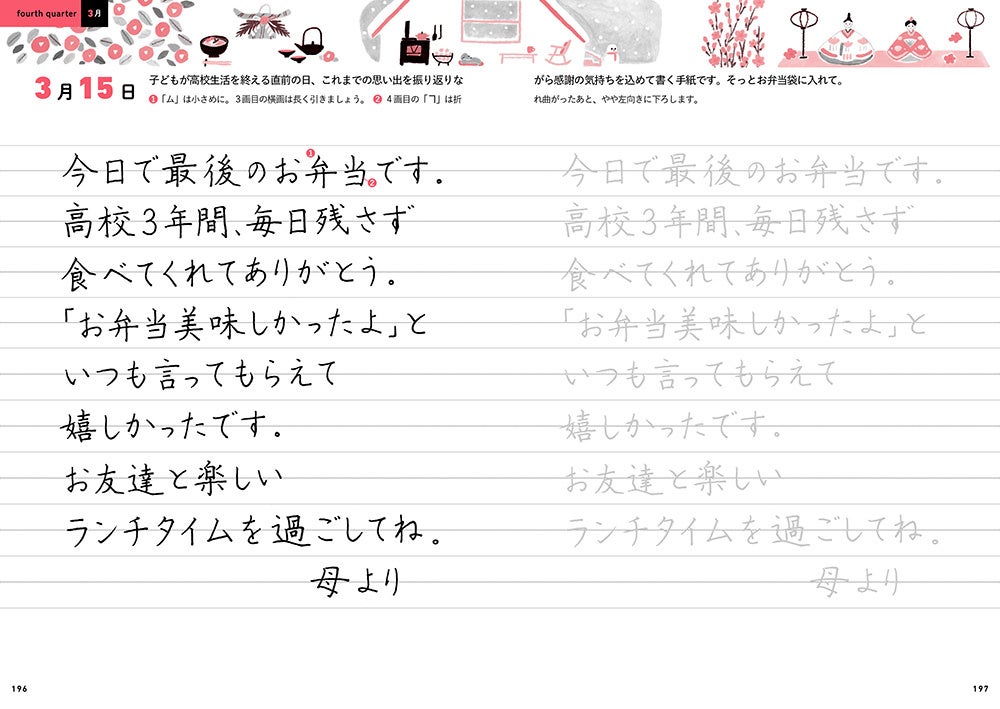 fourth quarter 3月
3月15日
子どもが高校生活を終える直前の日、これまでの思い出を振り返りながら感謝の気持ちを込めて書く手紙です。そっとお弁当袋に入れて。
❶「ム」は小さめに。3画目の横画は長く引きましょう。 ❷ 4画目の「㇕」は折れ曲がったあと、やや左向きに下ろします。
今日で最後のお弁当です。
❶
❷
高校3年間、毎日残さず
食べてくれてありがとう。
「お弁当美味しかったよ」と
いつも言ってもらえて
嬉しかったです。
お友達と楽しい
ランチタイムを過ごしてね。
母より
196
今日で最後のお弁当です。
高校3年間、毎日残さず
食べてくれてありがとう。
「お弁当美味しかったよ」と
いつも言ってもらえて
嬉しかったです。
お友達と楽しい
ランチタイムを過ごしてね。
母より
197